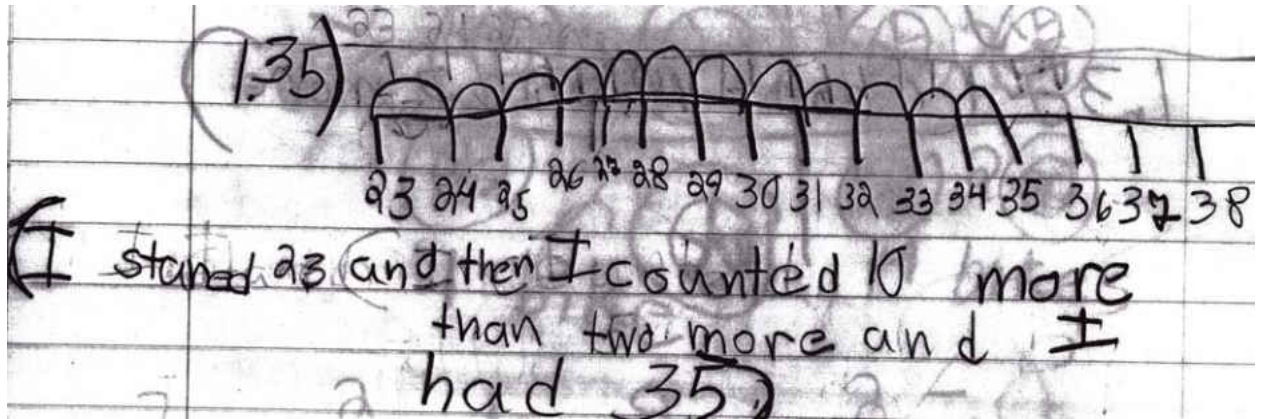 (1.35)
23 24 25 26 27 28 29 30 31 32 33 34 35 36 37 38
(I stared 23 and then I counted 10 more
than two more and I
had 35)